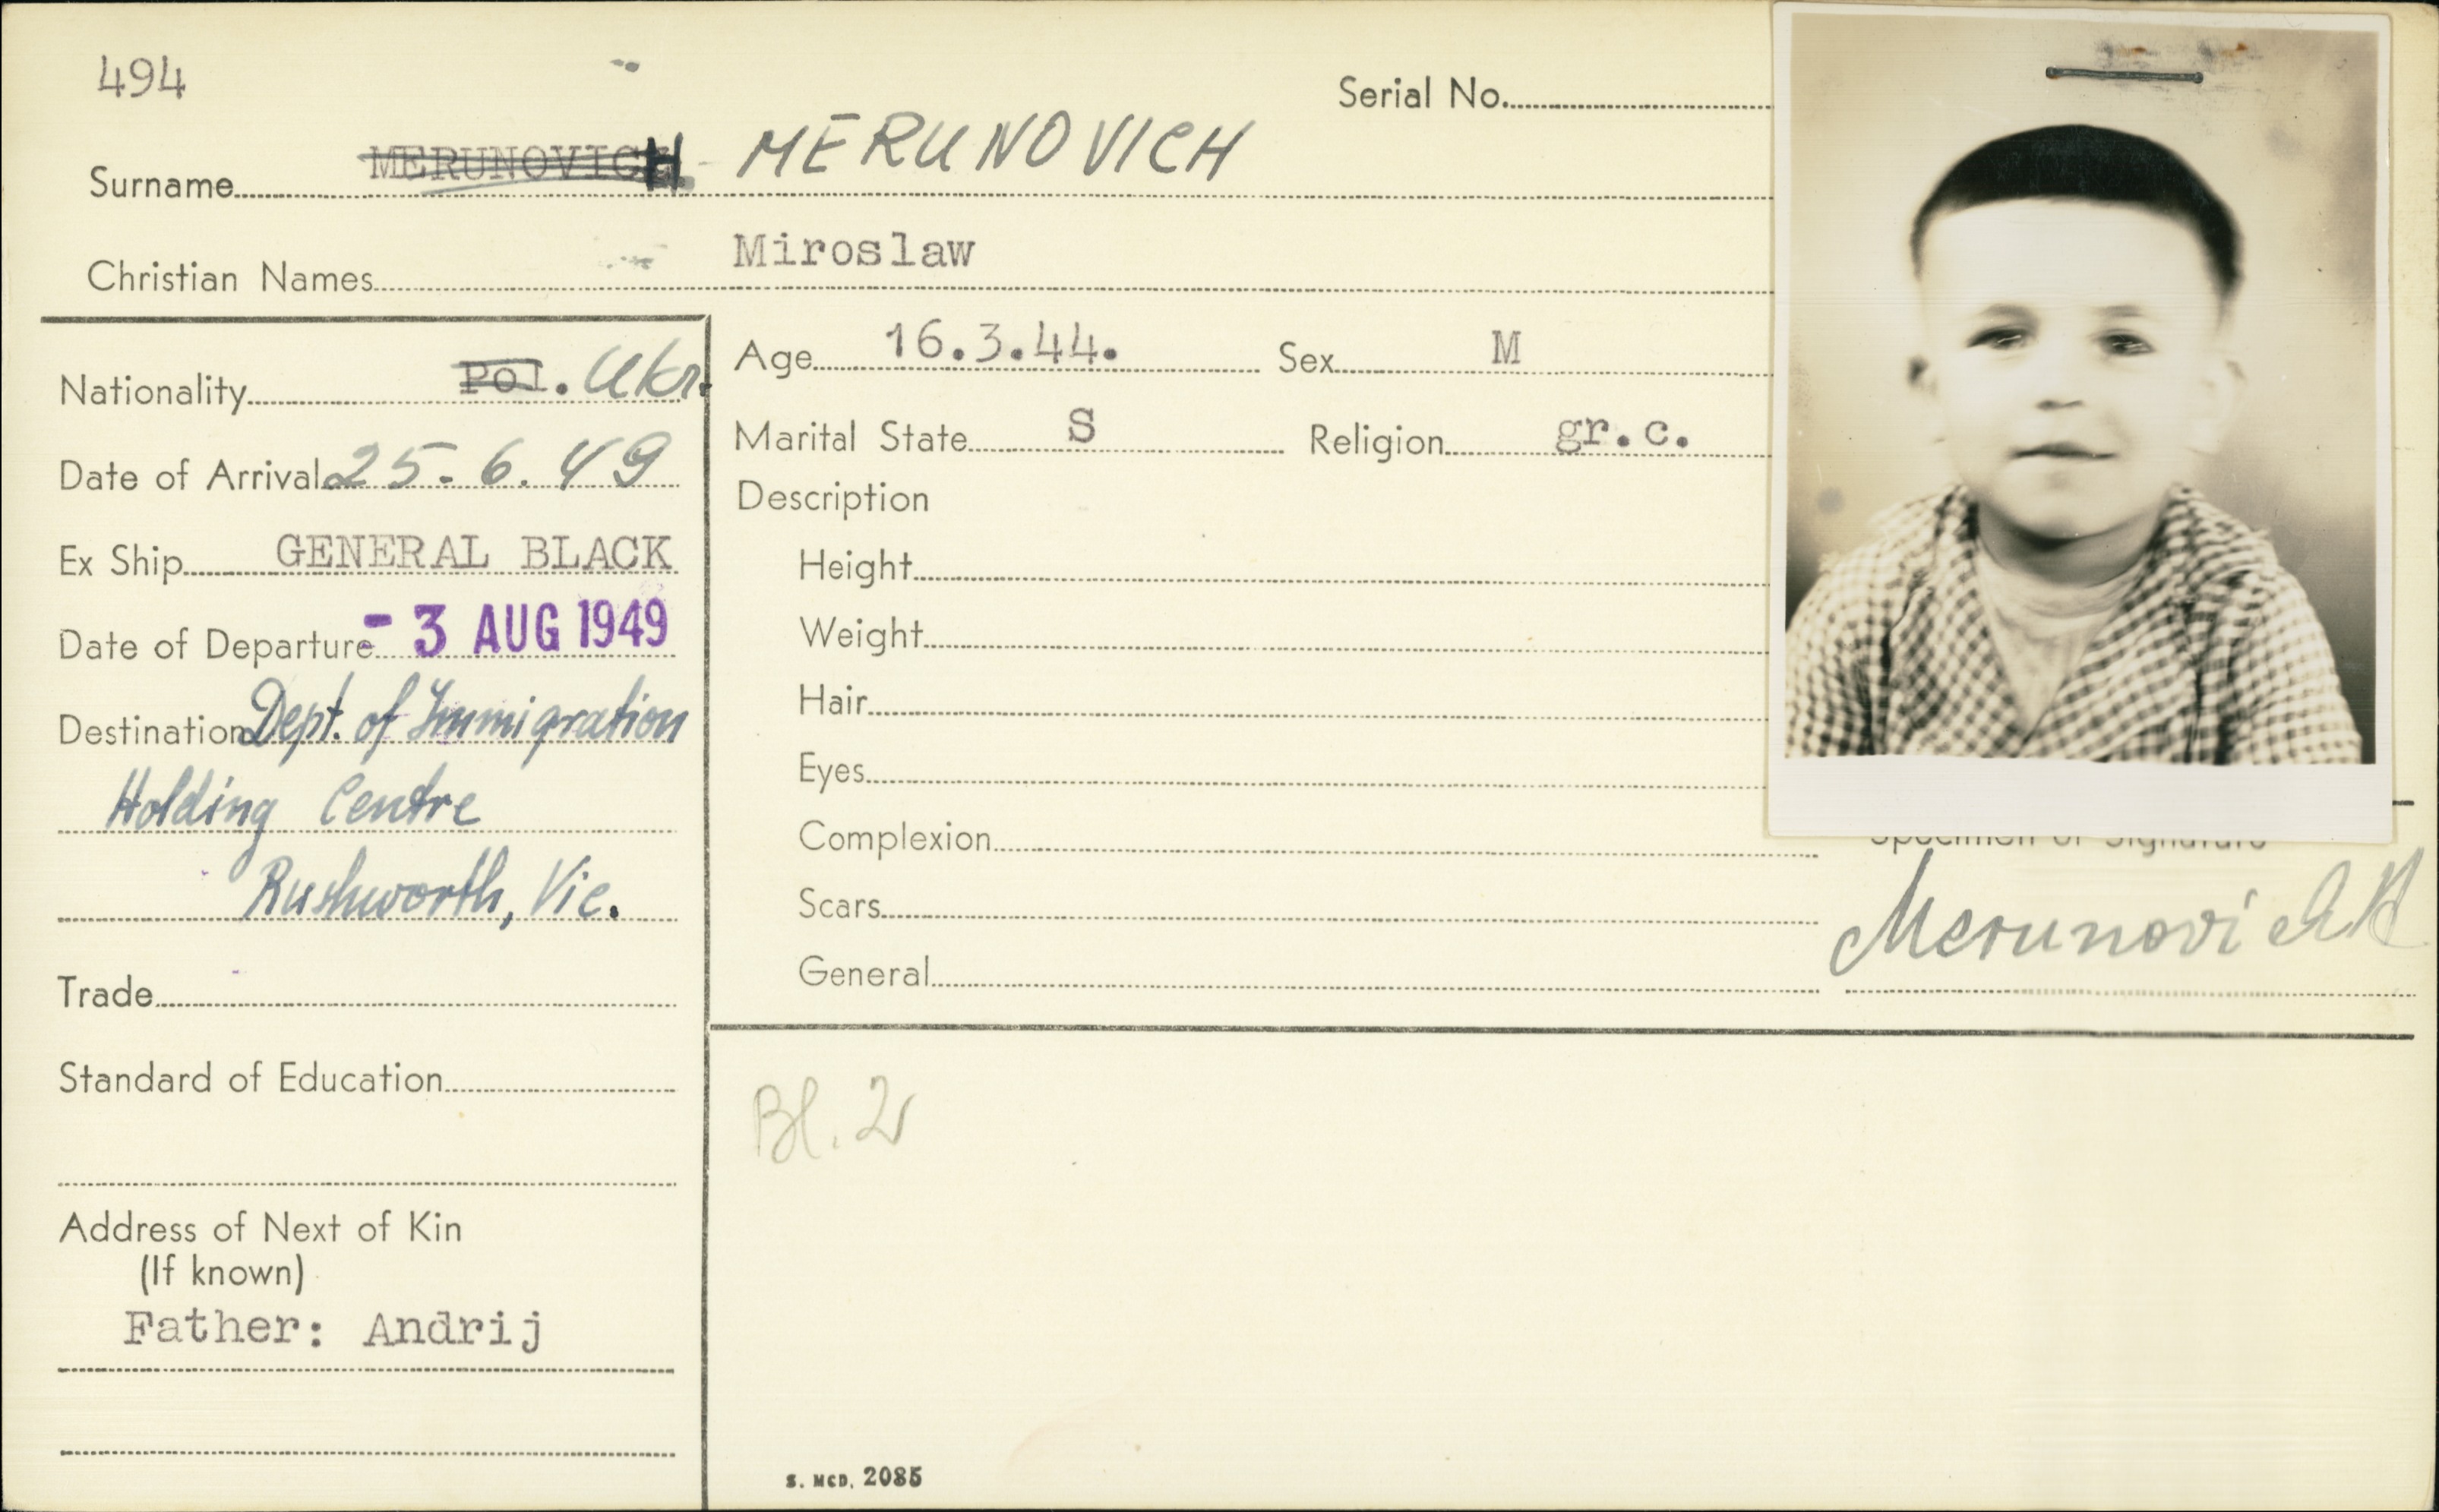 494
Serial No.
Surname MERUNOVICH MERUNOVICH
Christian Names Miroslaw
Nationality Pol. Ukr.
Date of Arrival 25.6.49
Ex Ship GENERAL BLACK
Date of Departure - 3 AUG 1949
Destination Dept. of Immigration
Holding Centre
Rushworth, Vic.
Trade
Standard of Education
Address of Next of Kin
(If known)
Father: Andrij
Age 16.3.44. Sex M
Marital State S Religion gr.c.
Description
Height
Weight
Hair
Eyes
Complexion
Scars
General
Specimen of Signature
Bl. 2
S. MCD. 2085